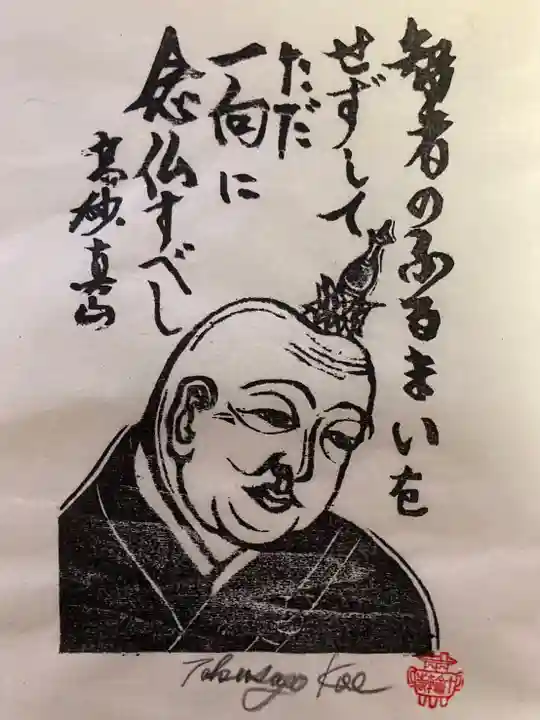 智者のふるまいを
せずして
ただ
一向に
念仏すべし
高砂真山
Takasago Koe